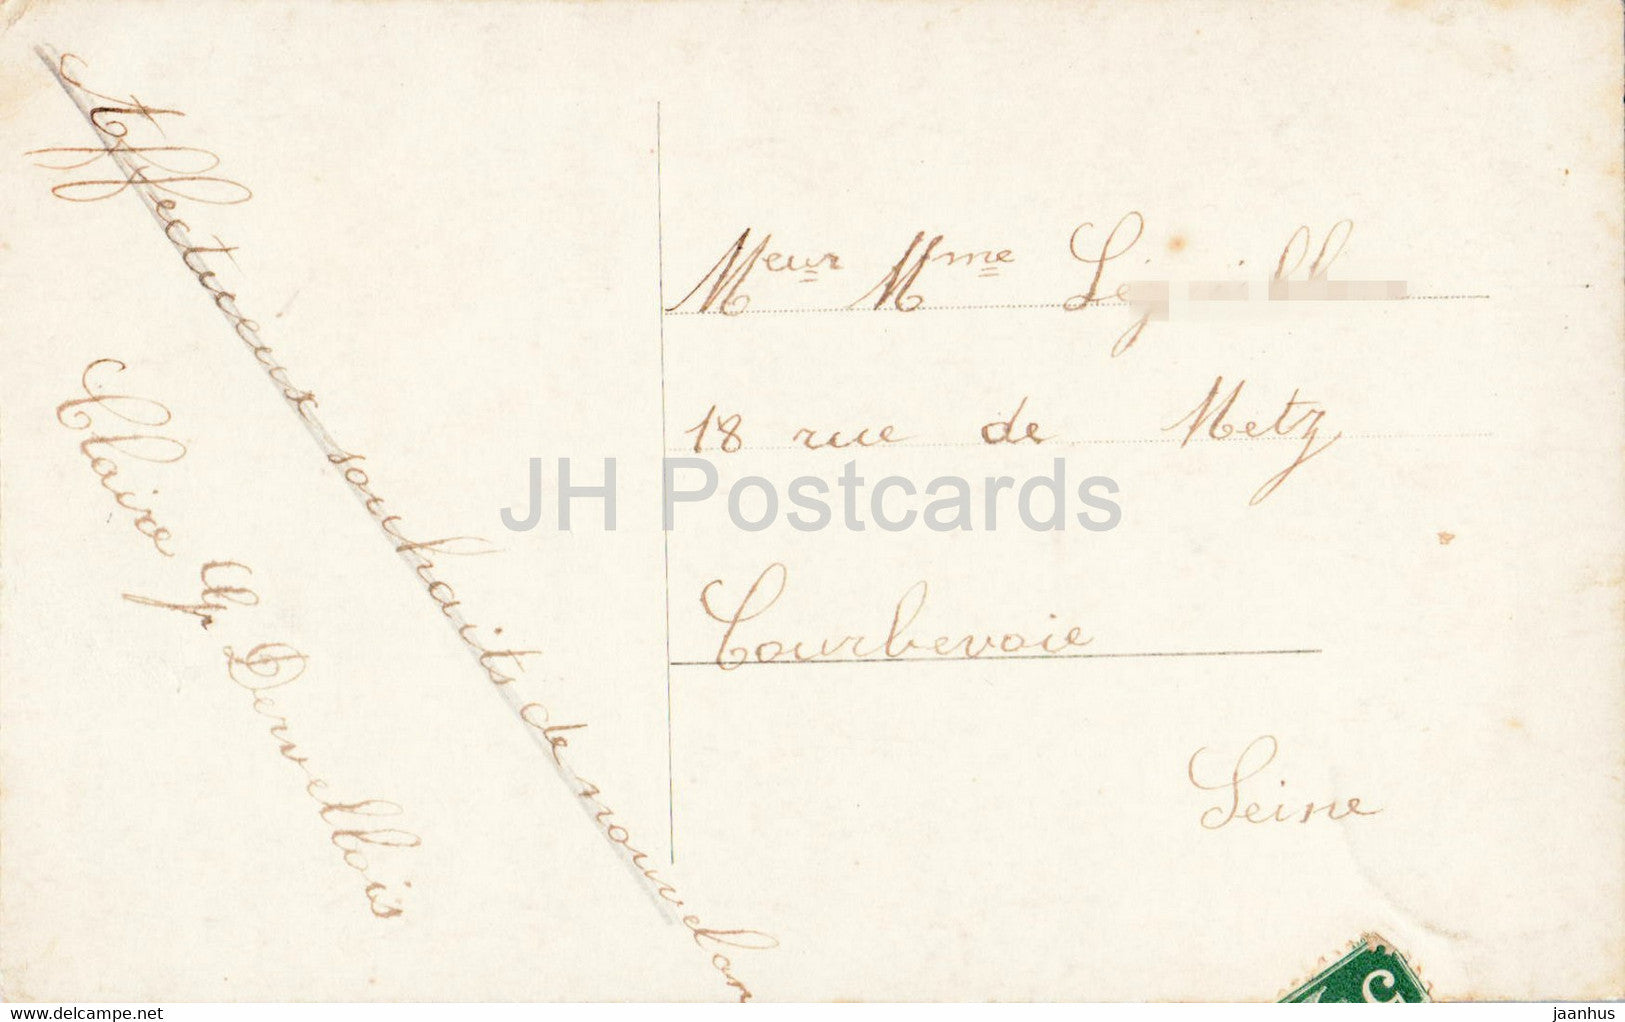 Affectueux souhaits de nouvel an
Claire Dervellois
Meur Mme
18 rue de Metz
Courbevoie
Seine
5
JH Postcards
delcampe.net
jaanhus